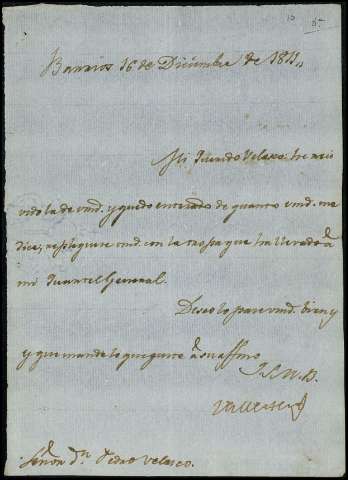 Barrios 16 de Diciembre de 1811,,
Mi querido Velasco: he reci
vido la de vmd. y quedo enterado de quanto vmd. me
dice; repleguese vmd. con la tropa que ha llevado à
mi Quartel General.
Deseo lo pase vmd. bien y
y que mande lo que guste à su affmo
Q. S. M. B.
Señor Dn. Pedro Velasco.